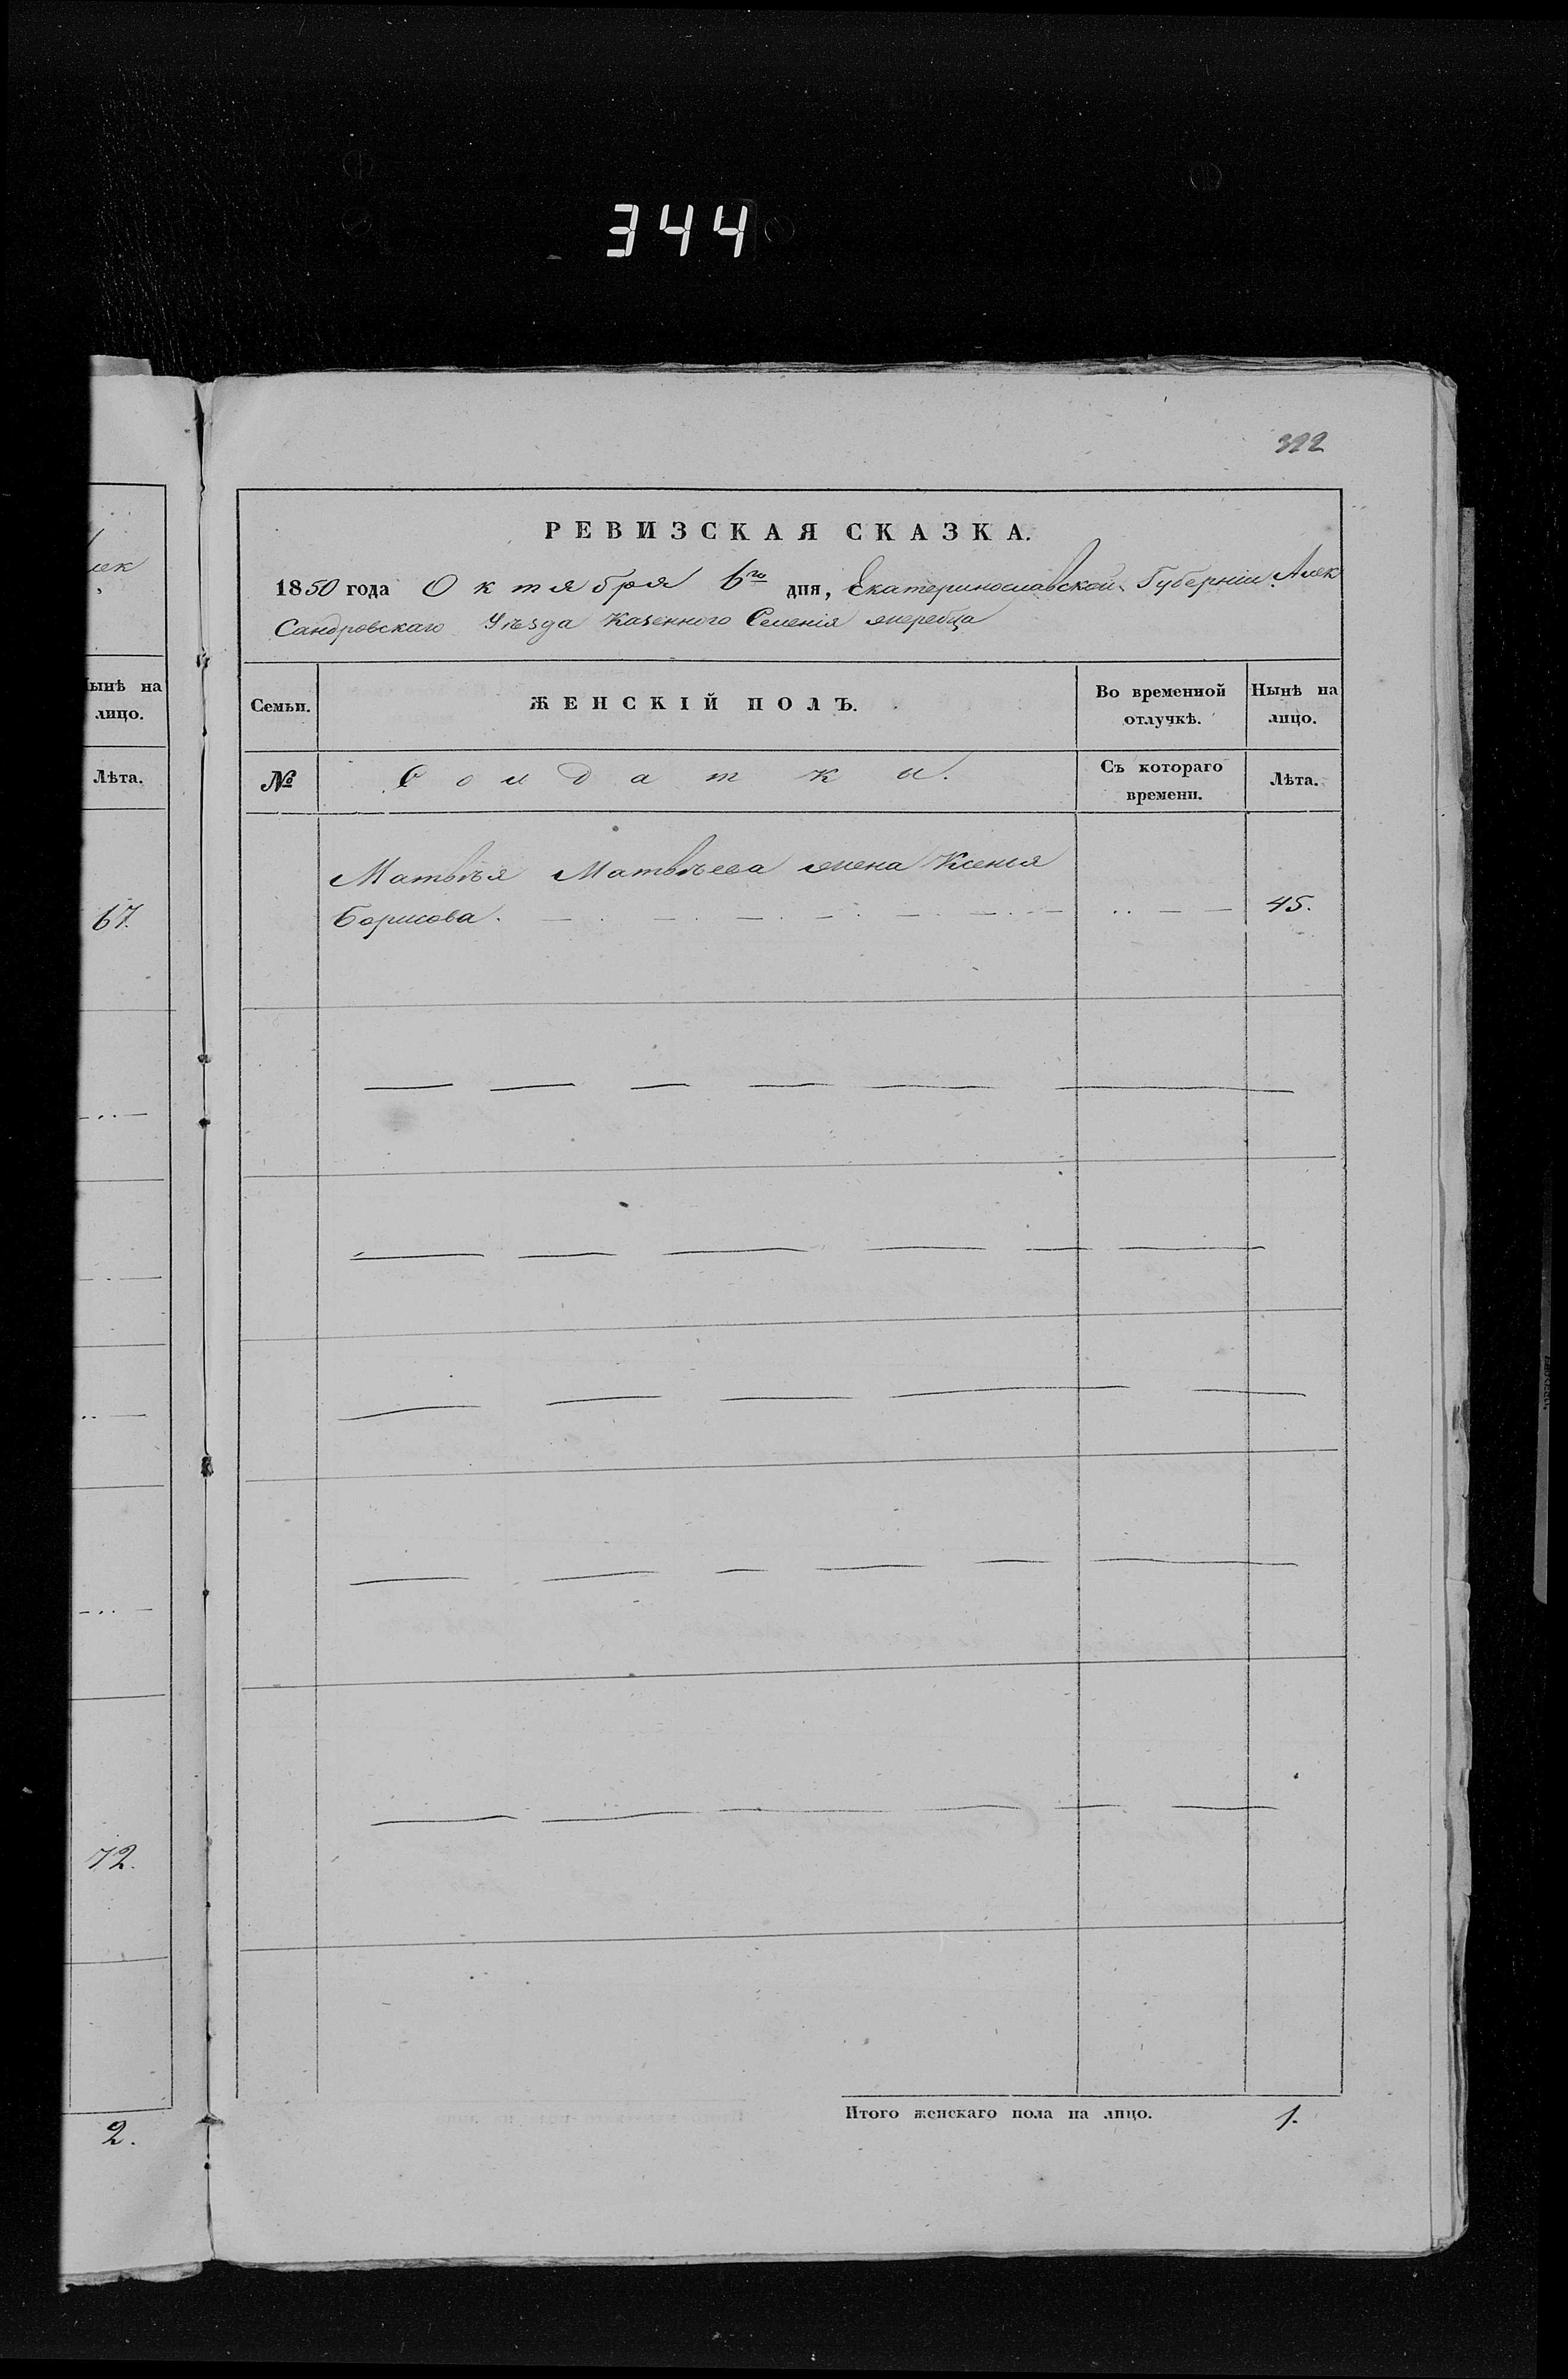 344
322
лек
Нынѣ на
лицо.
Лѣта.
67.
72.
2.
РЕВИЗСКАЯ СКАЗКА.
1850 года Октября 6го дня, Екатеринославской Губерніи Алек
сандровскаго Уѣзда Казенного Селенія жеребца
Семьи.
ЖЕНСКІЙ ПОЛЪ.
Во временной
отлучкѣ.
Нынѣ на
лицо.
№
Солдатки.
Съ котораго
времени.
Лѣта.
Матвѣя Матвѣева жена Ксенья
Борисова. 45.
Итого женскаго пола на лицо. 1.